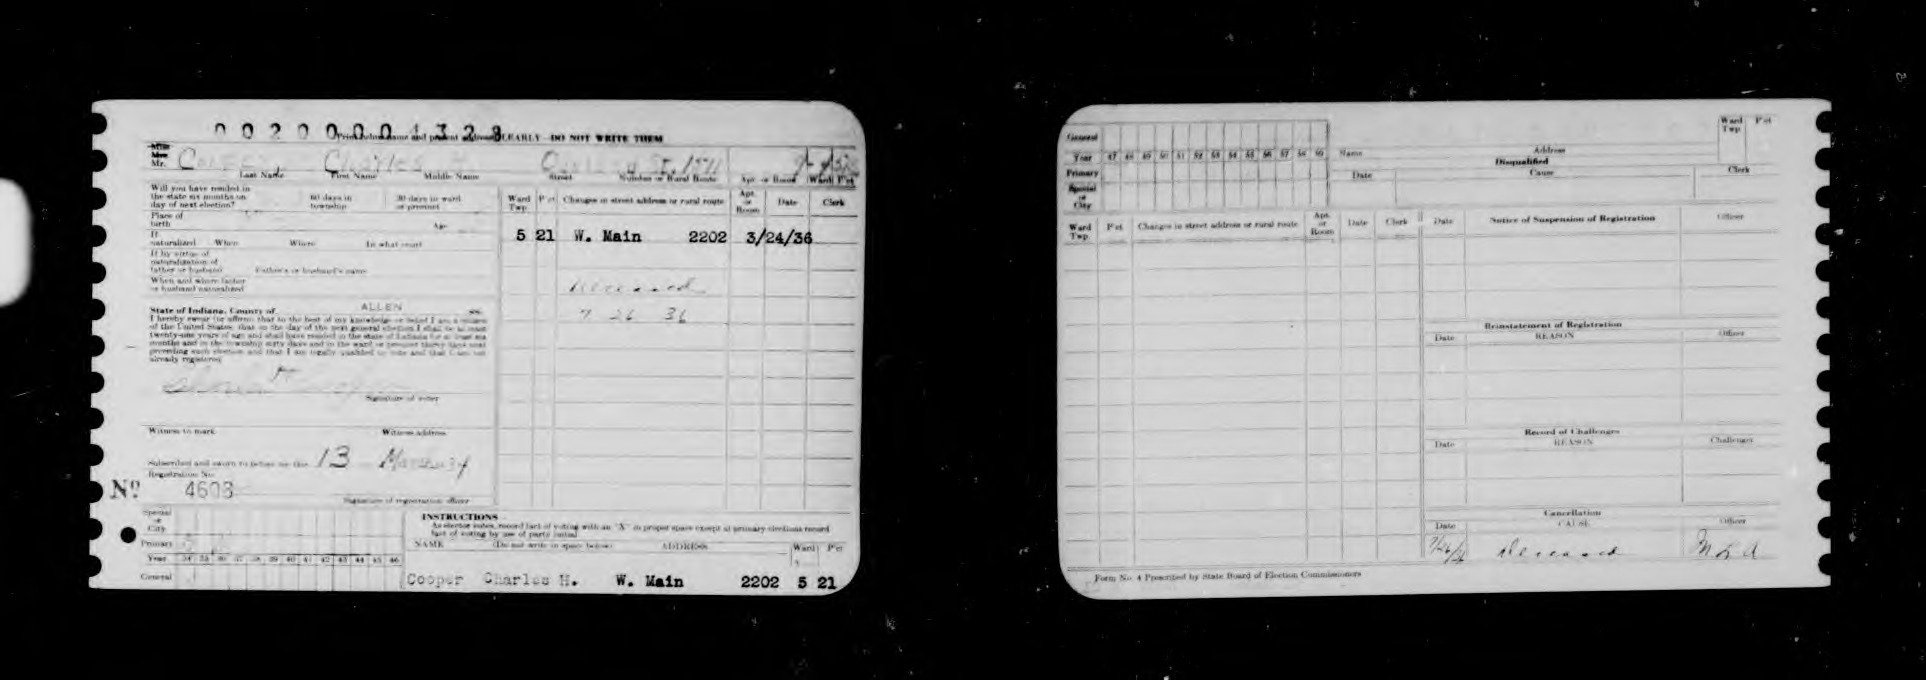 0020000 4328
CLEARLY—DO NOT WRITE THEM
Miss
Mrs.
Mr. Cooper, Charles H. 1511
Last Name First Name Middle Name Street Number or Rural Route Apt. or Room Ward P'ct
Will you have resided in
the state six months on
day of next election?
60 days in
township
30 days in ward
or precinct
Place of
birth
Age
If
naturalized When Where In what court
If by virtue of
naturalization of
father or husband Father's or husband's name
When and where father
or husband naturalized
State of Indiana, County of ALLEN ss:
I hereby swear (or affirm) that to the best of my knowledge or belief I am a citizen
of the United States, that on the day of the next general election I shall be at least
twenty-one years of age and shall have resided in the state of Indiana for at least six
months and in the township sixty days and in the ward or precinct thirty days next
preceding such election and that I am legally qualified to vote and that I am not
already registered
Signature of voter
Witness to mark Witness address
Subscribed and sworn to before me this 13
Registration No.
Nº 4603
Signature of registration officer
Ward
Twp P'ct Changes in street address or rural route Apt.
or
Room Date Clerk
5 21 W. Main 2202 3/24/36
Deceased
7 26 36
Special
or
City
Primary
Year 34 35 36 37 38 39 40 41 42 43 44 45 46
General
INSTRUCTIONS
As elector votes, record fact of voting with an "X" in proper space except at primary elections record
fact of voting by use of party initial
NAME (Do not write in space below) ADDRESS Ward P'ct
Cooper Charles H. W. Main 2202 5 21
General
Year 47 48 49 50 51 52 53 54 55 56 57 58 59
Primary
Special
or
City
Name Address Ward
Twp P'ct
Disqualified
Date Cause Clerk
Ward
Twp. P'ct Changes in street address or rural route Apt.
or
Room Date Clerk
Date Notice of Suspension of Registration Officer
Reinstatement of Registration
Date REASON Officer
Record of Challenges
Date REASON Challenger
Cancellation
Date CAUSE Officer
7/26/36 Deceased
Form No. 4 Prescribed by State Board of Election Commissioners